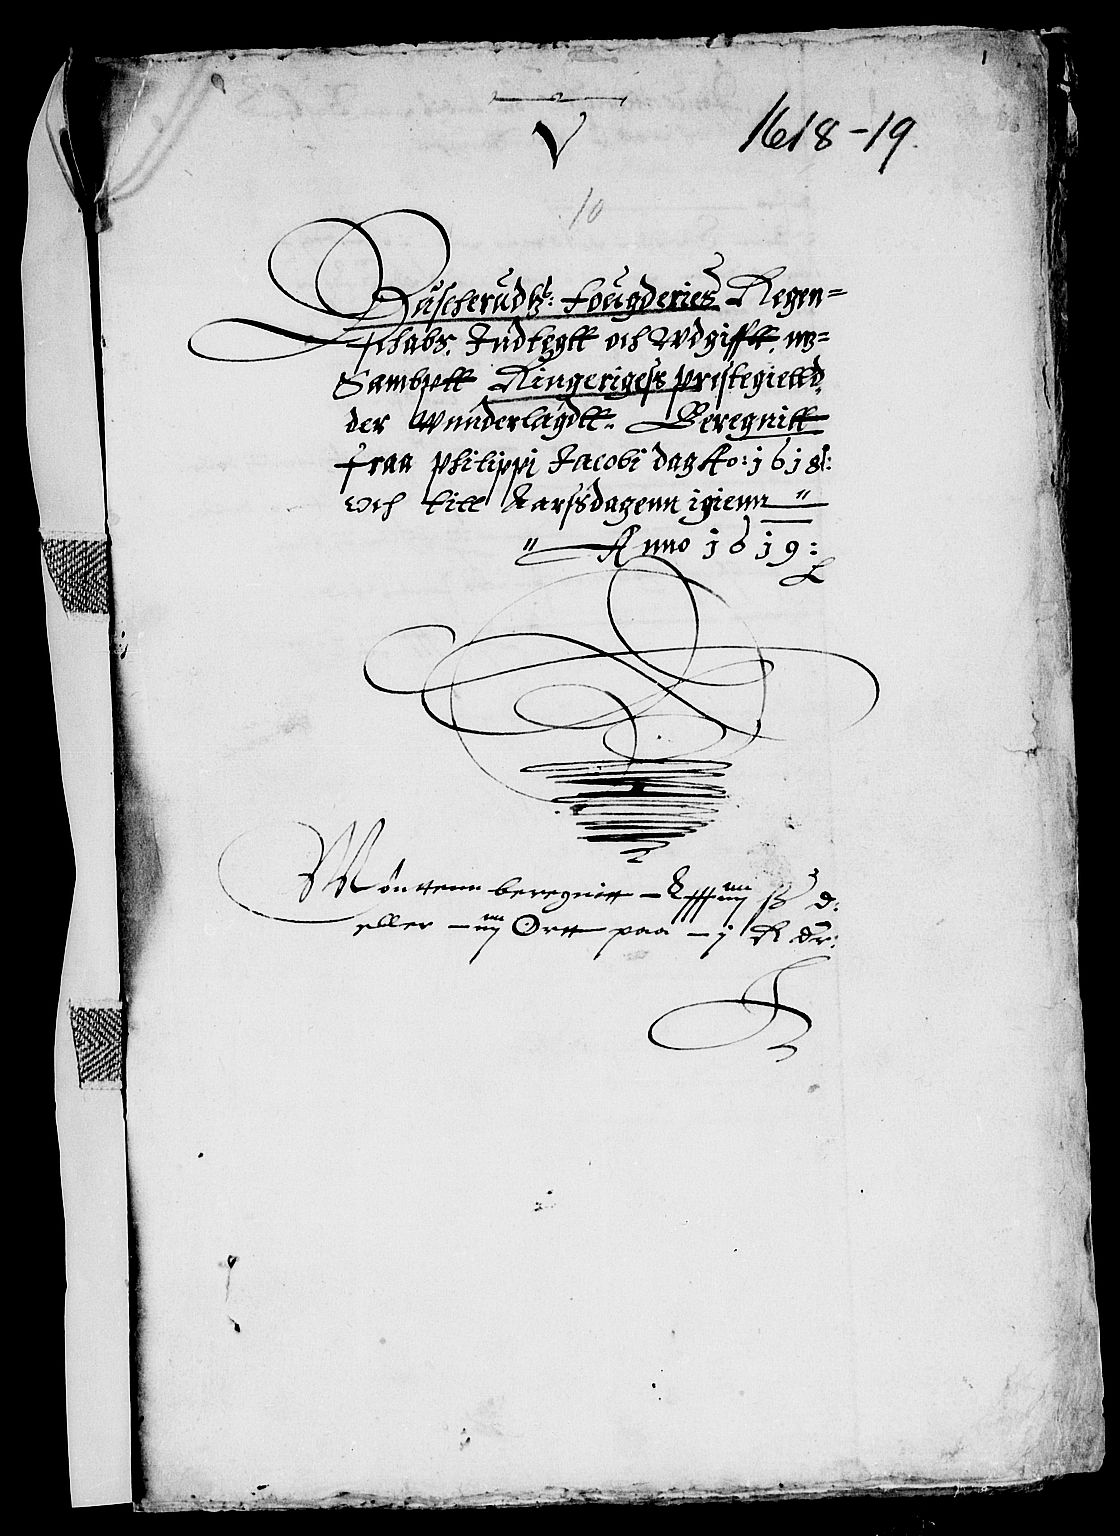 V
1618-19.
10
1
Buscherudtz: fougderies Regen=
schabs. Indtegtt och Wdgifftt, m3=
Sambptt Ringerigess prestegielld,
der Wunderlagdtt. Beregnitt
fraa philippi Jacobi dag Ao: 1618:
Och till Aarssdagenn igienn "
" Anno 1619:
Mönttenn beregnitt ß d:
eller Ortt paa – j R dr: